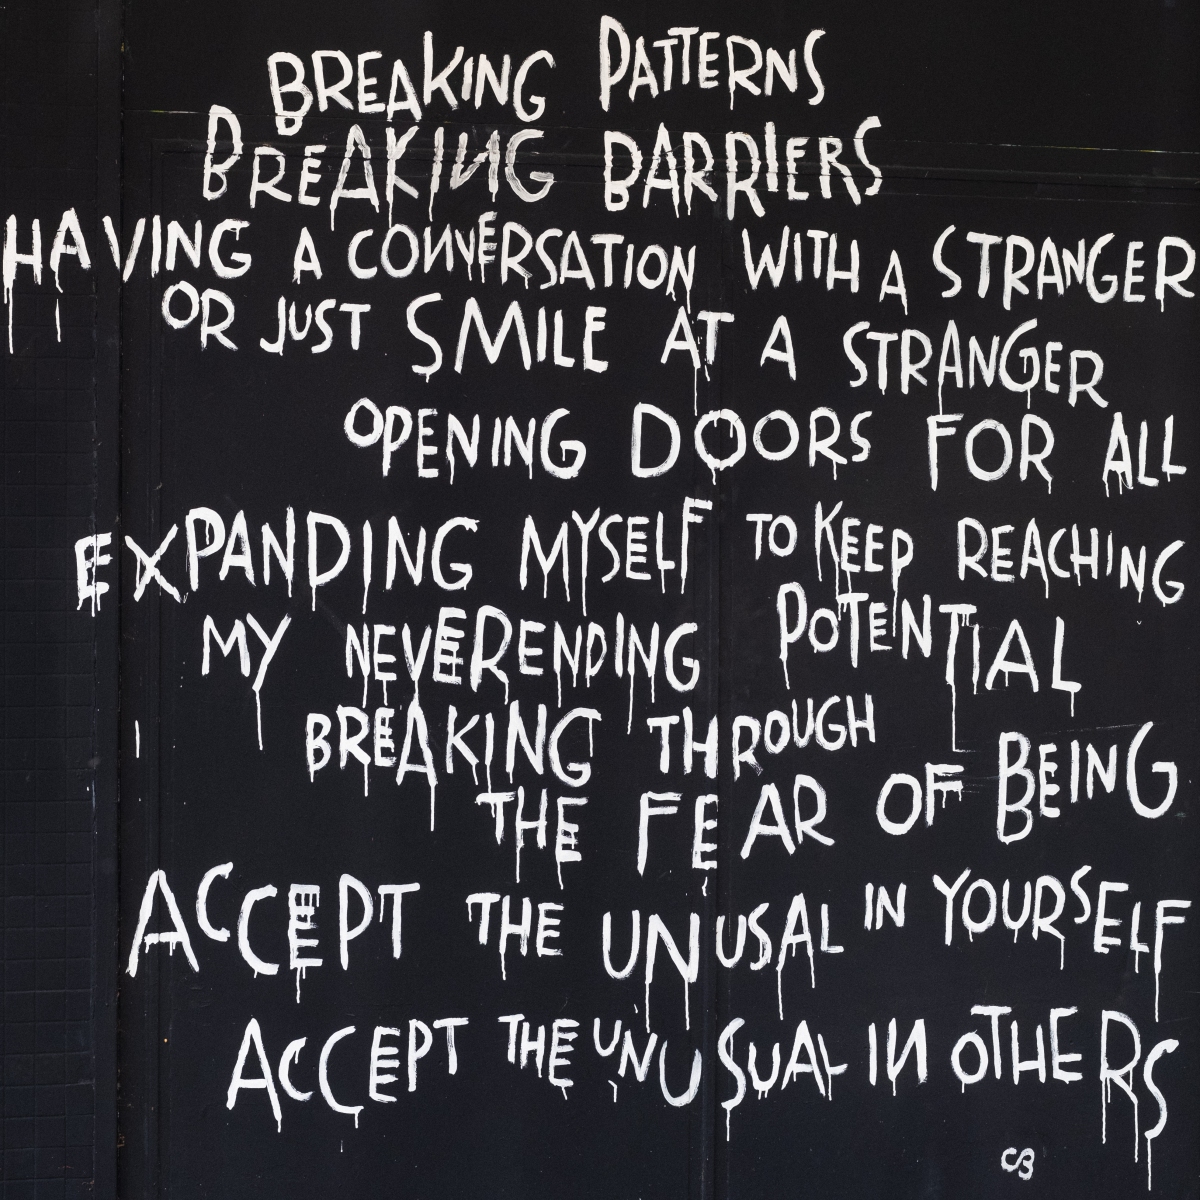 BREAKING PATTERNS
BREAKING BARRIERS
HAVING A CONVERSATION WITH A STRANGER
OR JUST SMILE AT A STRANGER
OPENING DOORS FOR ALL
EXPANDING MYSELF TO KEEP REACHING
MY NEVERENDING POTENTIAL
BREAKING THROUGH
THE FEAR OF BEING
ACCEPT THE UNUSAL IN YOURSELF
ACCEPT THE UNUSUAL IN OTHERS
CB